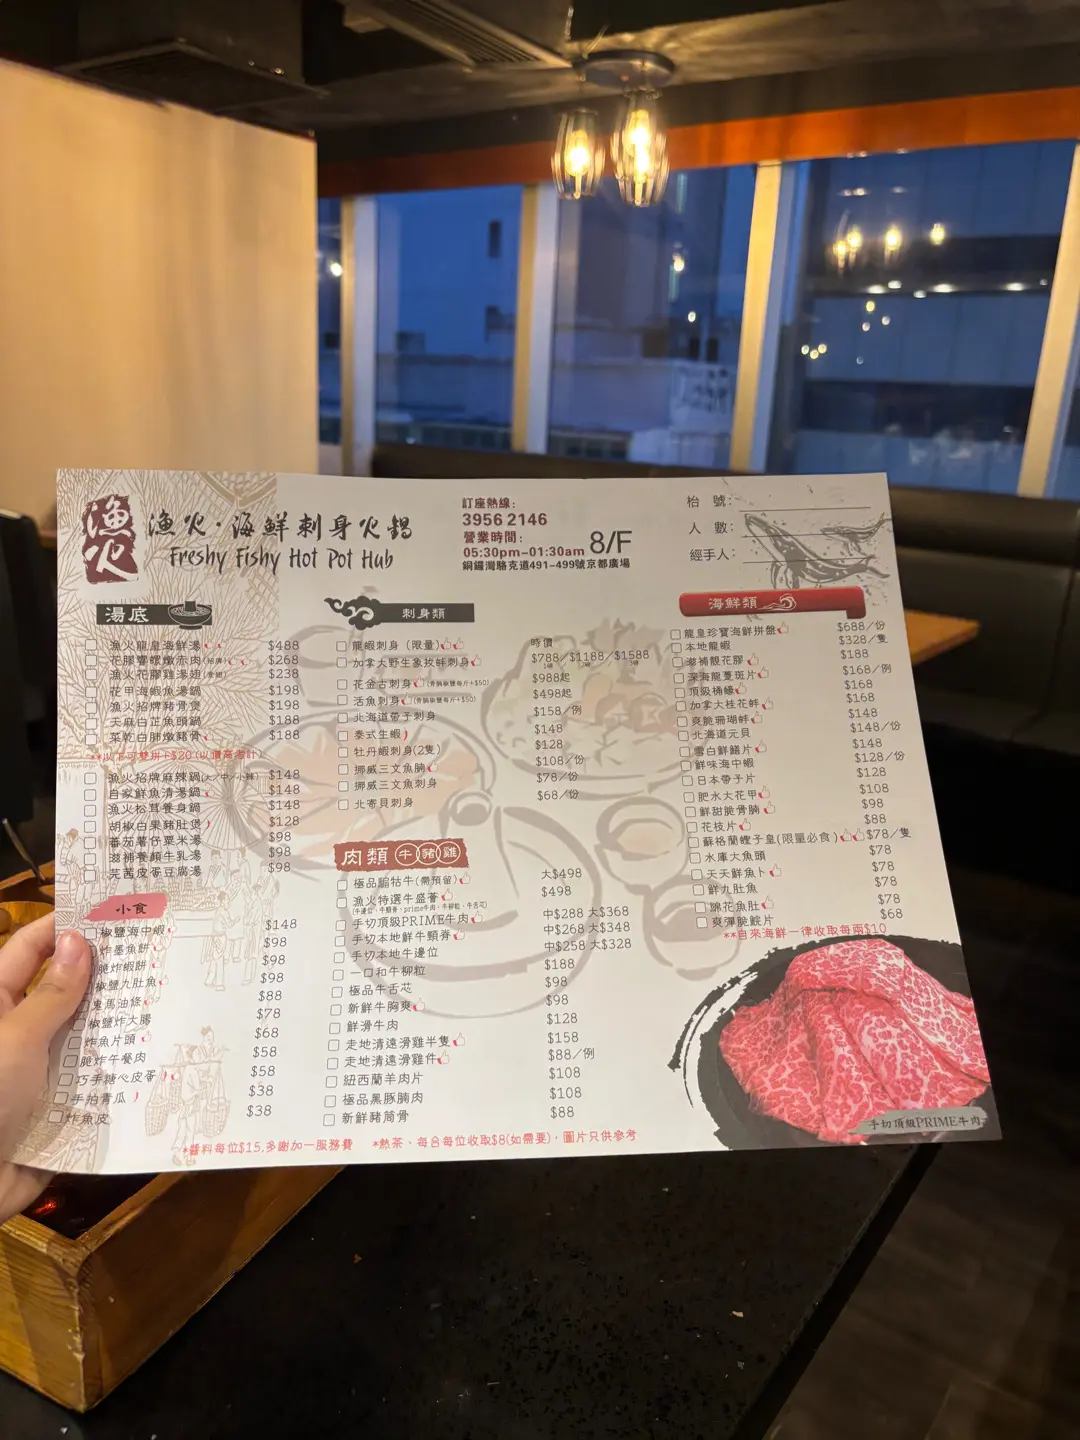 漁火
漁火·海鮮刺身火鍋
Freshy Fishy Hot Pot Hub
訂座熱線:
3956 2146
營業時間:
05:30pm-01:30am
8/F
銅鑼灣駱克道491-499號京都廣場
枱 號:
人 數:
經手人:
湯底
漁火龍皇海鮮湯 $488
花膠響螺燉赤肉 $268
漁火花膠雞湯翅 $238
花甲海蝦魚湯鍋 $198
漁火招牌豬骨煲 $198
天麻白芷魚頭鍋 $188
菜乾白肺燉豬骨 $188
**以下可雙拼+$20(以價高為計)
漁火招牌麻辣鍋(大/中/小辣) $148
自家鮮魚清湯鍋 $148
漁火松茸養身鍋 $148
胡椒白果豬肚煲 $128
蕃茄薯仔粟米湯 $98
滋補養顏牛乳湯 $98
芫茜皮蛋豆腐湯 $98
小食
椒鹽海中蝦 $148
炸墨魚餅 $98
脆炸蝦餅 $98
椒鹽九肚魚 $98
鬼馬油條 $88
椒鹽炸大腸 $78
炸魚片頭 $68
脆炸午餐肉 $58
巧手糖心皮蛋 $58
手拍青瓜 $38
炸魚皮 $38
刺身類
龍蝦刺身 (限量) 時價
加拿大野生象拔蚌刺身 $788/$1188/$1588
花金古刺身(骨腩椒鹽每斤+$50) $988起
活魚刺身(骨腩椒鹽每斤+$50) $498起
北海道帶子刺身 $158/例
泰式生蝦 $148
牡丹蝦刺身(2隻) $128
挪威三文魚腩 $108/份
挪威三文魚刺身 $78/份
北寄貝刺身 $68/份
肉類 牛 豬 雞
極品騸牯牛(需預留) 大$498
漁火特選牛盛薈 $498
手切頂級PRIME牛肉 中$288 大$368
手切本地鮮牛頸脊 中$268 大$348
手切本地牛邊位 中$258 大$328
一口和牛柳粒 $188
極品牛舌芯 $98
新鮮牛胸爽 $98
鮮滑牛肉 $128
走地清遠滑雞半隻 $158
走地清遠滑雞件 $88/例
紐西蘭羊肉片 $108
極品黑豚腩肉 $108
新鮮豬筒骨 $88
海鮮類
龍皇珍寶海鮮拼盤 $688/份
本地龍蝦 $328/隻
滋補靚花膠 $188
深海龍躉斑片 $168/例
頂級桶蠔 $168
加拿大桂花蚌 $168
爽脆珊瑚蚌 $148
北海道元貝 $148/份
雪白鮮鱔片 $148
鮮味海中蝦 $128/份
日本帶子片 $128
肥水大花甲 $108
鮮甜脆骨腩 $98
花枝片 $88
蘇格蘭蟶子皇(限量必食) $78/隻
水庫大魚頭 $78
天天鮮魚卜 $78
鮮九肚魚 $78
綿花魚肚 $78
爽彈脆鯇片 $68
**自來海鮮一律收取每兩$10
手切頂級PRIME牛肉
*醬料每位$15,多謝加一服務費 *熱茶、每合每位收取$8(如需要),圖片只供參考